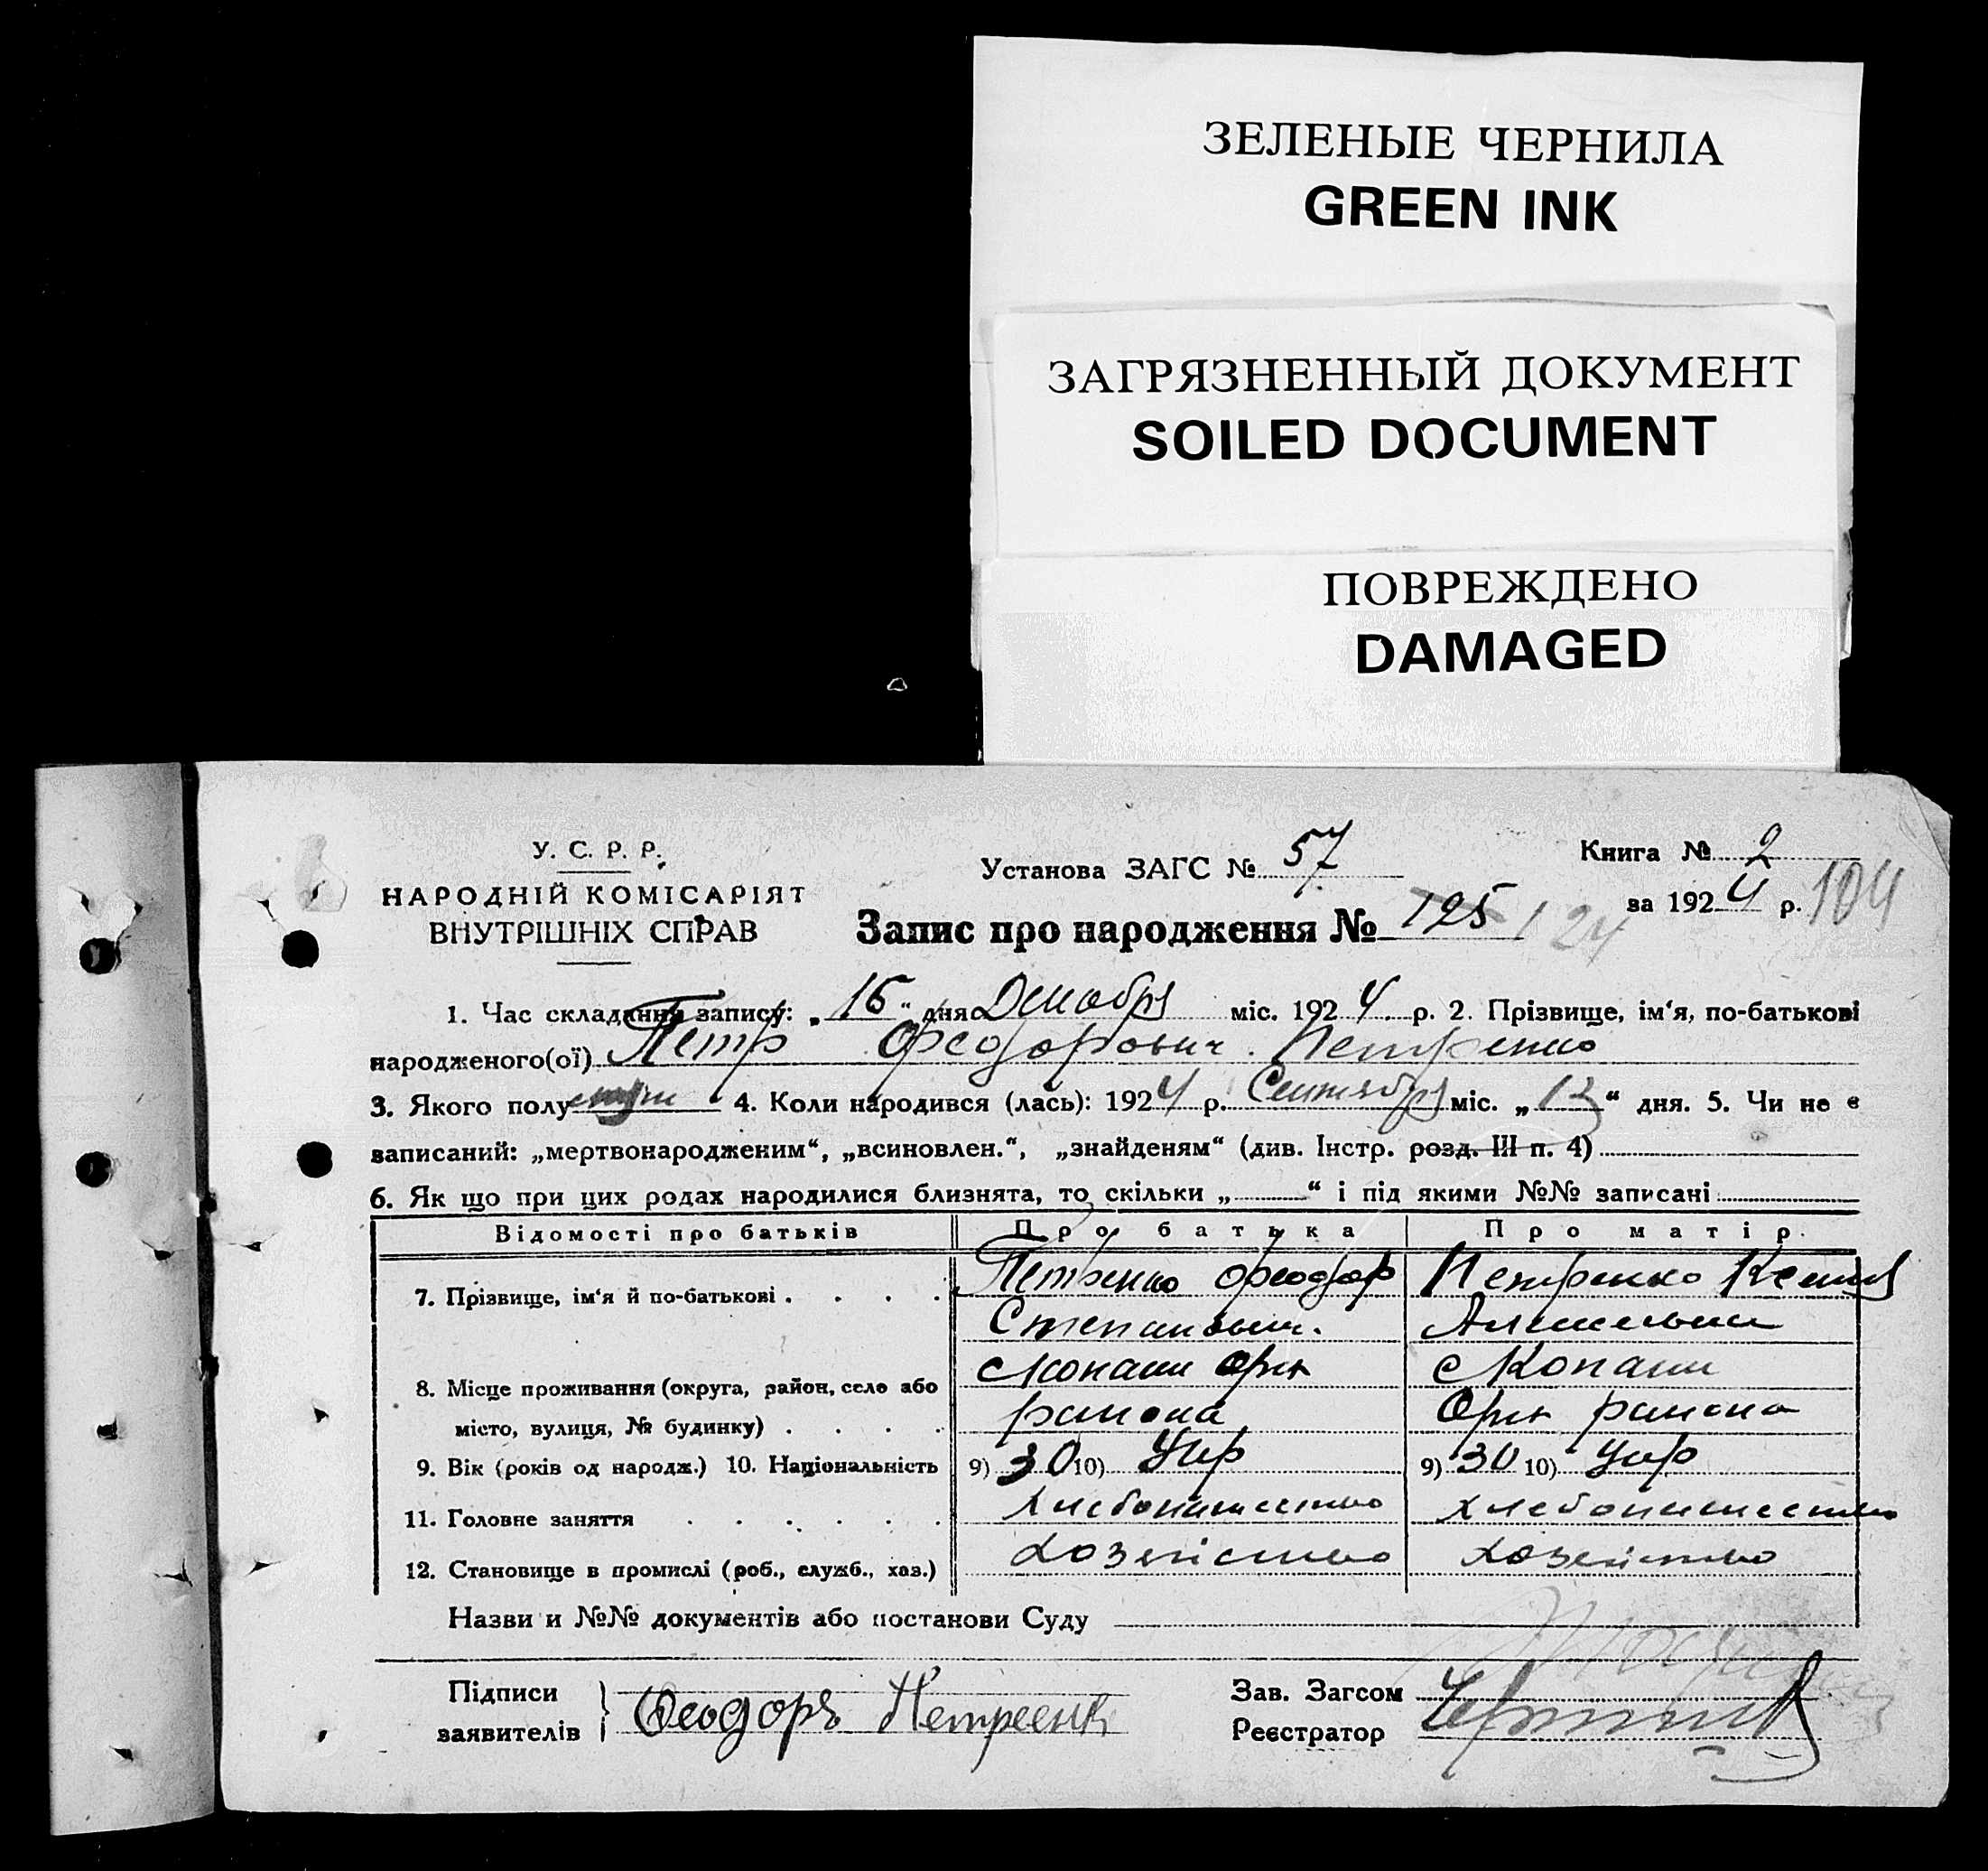 ЗЕЛЕНЫЕ ЧЕРНИЛА
GREEN INK
ЗАГРЯЗНЕННЫЙ ДОКУМЕНТ
SOILED DOCUMENT
ПОВРЕЖДЕНО
DAMAGED
У. С. Р. Р.
НАРОДНІЙ КОМІСАРІЯТ
ВНУТРІШНІХ СПРАВ
Установа ЗАГС № 57
Книга № 2
за 1924 р. 104
Запис про народження № 125 124
1. Час складання запису: „15“ дня Декабря міс. 1924 р. 2. Прізвище, ім'я, по-батькові
народженого(ої) Петр Феодорович Петренко
3. Якого полу муж 4. Коли народився (лась): 1924 р. Сентября міс. „13“ дня. 5. Чи не є
записаний: „мертвонародженим“, „всиновлен.“, „знайденям“ (див. Інстр. розд. III п. 4)
6. Як що при цих родах народилися близнята, то скільки „ “ і під якими №№ записані
Відомості про батьків Про батька Про матір.
7. Прізвище, ім'я й по-батькові . . . . Петренко Феодор Петренко
Степанович.
8. Місце проживання (округа, район, село або с Копани Орех с Копани
місто, вулиця, № будинку) . . . . района Орех района
9. Вік (років од народж.) 10. Національність 9) 30 10) Укр 9) 30 10) Укр
11. Головне заняття . . . . . . хлебопашество хлебопашество
12. Становище в промислі (роб., служб., хаз.) хозяйство хозяйство
Назви и №№ документів або постанови Суду
Підписи
заявителів } Феодоръ Петреенк
Зав. Загсом
Реєстратор